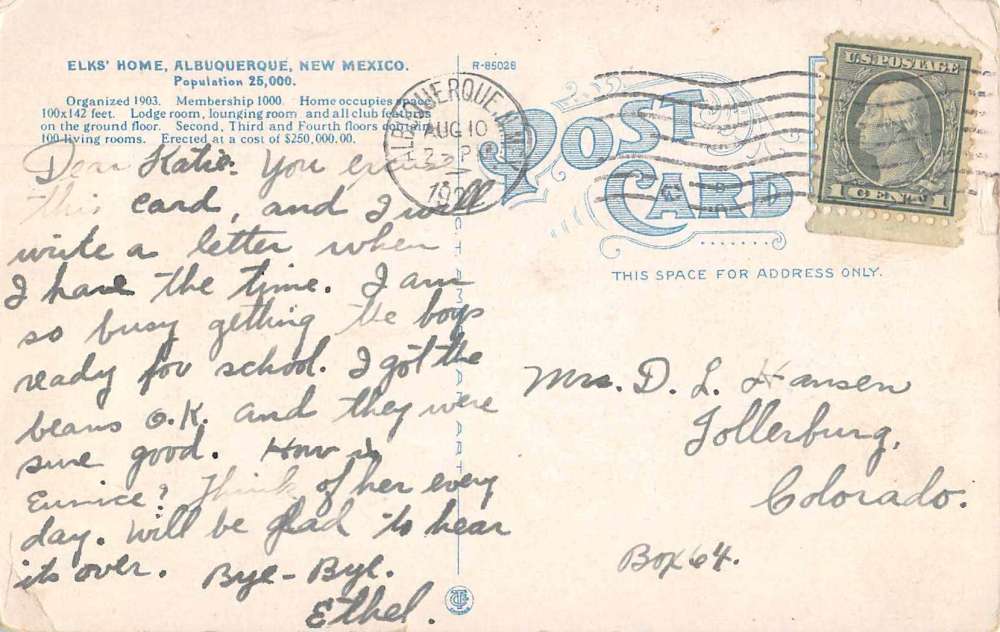 ELKS' HOME, ALBUQUERQUE, NEW MEXICO.
Population 25,000.
Organized 1903. Membership 1000. Home occupies space
100x142 feet. Lodge room, lounging room and all club features
on the ground floor. Second, Third and Fourth floors contain
100 living rooms. Erected at a cost of $250,000.00.
R-85028
ALBUQUERQUE, N.MEX.
AUG 10
POST CARD
U.S. POSTAGE
1 CENT 1
THIS SPACE FOR ADDRESS ONLY.
Dear Katie. You
this card, and I will
write a letter when
I have the time. I am
so busy getting the boys
ready for school. I got the
beans O.K. and they were
sure good. How is
Eunice? Think of her every
day. Will be glad to hear
its over. Bye-Bye.
Ethel.
Mrs. D. L. Hansen
Tollerburg,
Colorado.
Box 64.